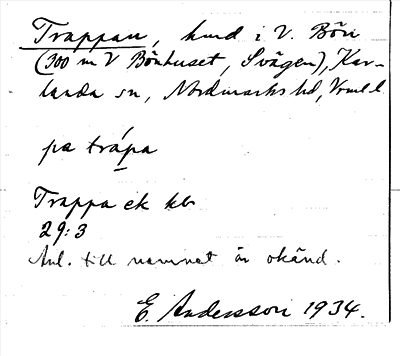 Trappan, hmd i V. Bön
(300 m V Bönhuset, Svägen), Kar-
landa sn, Nordmarks hd, Vrml l.
pa trápa
Trappa ek kb
29:3
Anl. till namnet är okänd.
E. Andersson 1934.